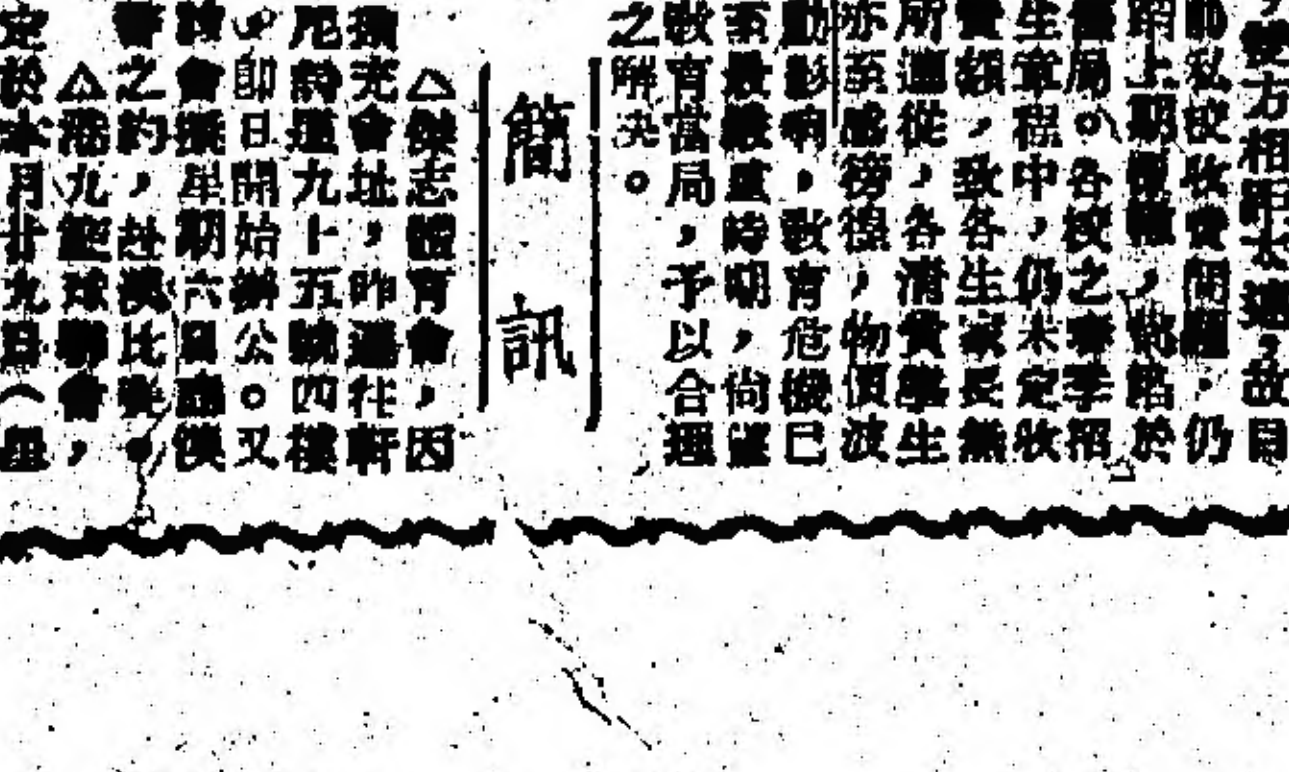 ，雙方相距太遠，故目
師私校收費問題，仍
，於
舊局。各校之春季招
生章程中，仍未定收
費額，致各生家長無
所適從，各清貧學生
亦至感徬徨，物價波
動影響，教育危機已
至最嚴重時期，尚望
教育當局，予以合理
之解決。
簡訊
△傑志體育會，因
擴充會址，昨遷往軒
尼詩道九十五號四樓
即日開始辦公。又
該會擬星期六日
之約，赴澳比賽。
△港九籃球聯會，
定於本月廿九日（星